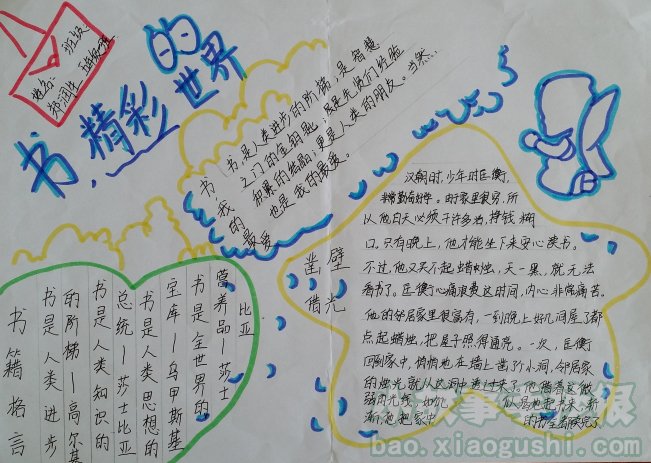 班级
姓名：
书，精彩的世界
书，我的最爱
书是人类进步的阶梯；是智慧
之门的金钥匙；
积累的结晶；更是人类的朋友。当然…
也是我的最爱。
凿壁
借光
汉朝时，少年时匡衡，
非常勤奋好学。由于家里很穷，所
以他白天必须干许多活，挣钱糊
口。只有晚上，他才能坐下来安心读书。
不过，他又买不起蜡烛，天一黑，就无法
看书了。匡衡心痛浪费这时间，内心非常痛苦。
他的邻居家里很富有，一到晚上好几间屋子都
点起蜡烛，把屋子照得通亮。一次，匡衡
回到家中，悄悄地在墙上凿了个小洞，邻居家
的烛光就从这洞中透过来了。他借着这微
弱的光线，如饥似渴地起书来，渐
渐地把家中的书全都读完了
书籍格言
书是人类进步
的阶梯—高尔基
书是人类知识的
总统—莎士比亚
书是人类思想的
宝库—乌申斯基
书是全世界的
营养品—莎士
比亚
bao.xiaogushi.com